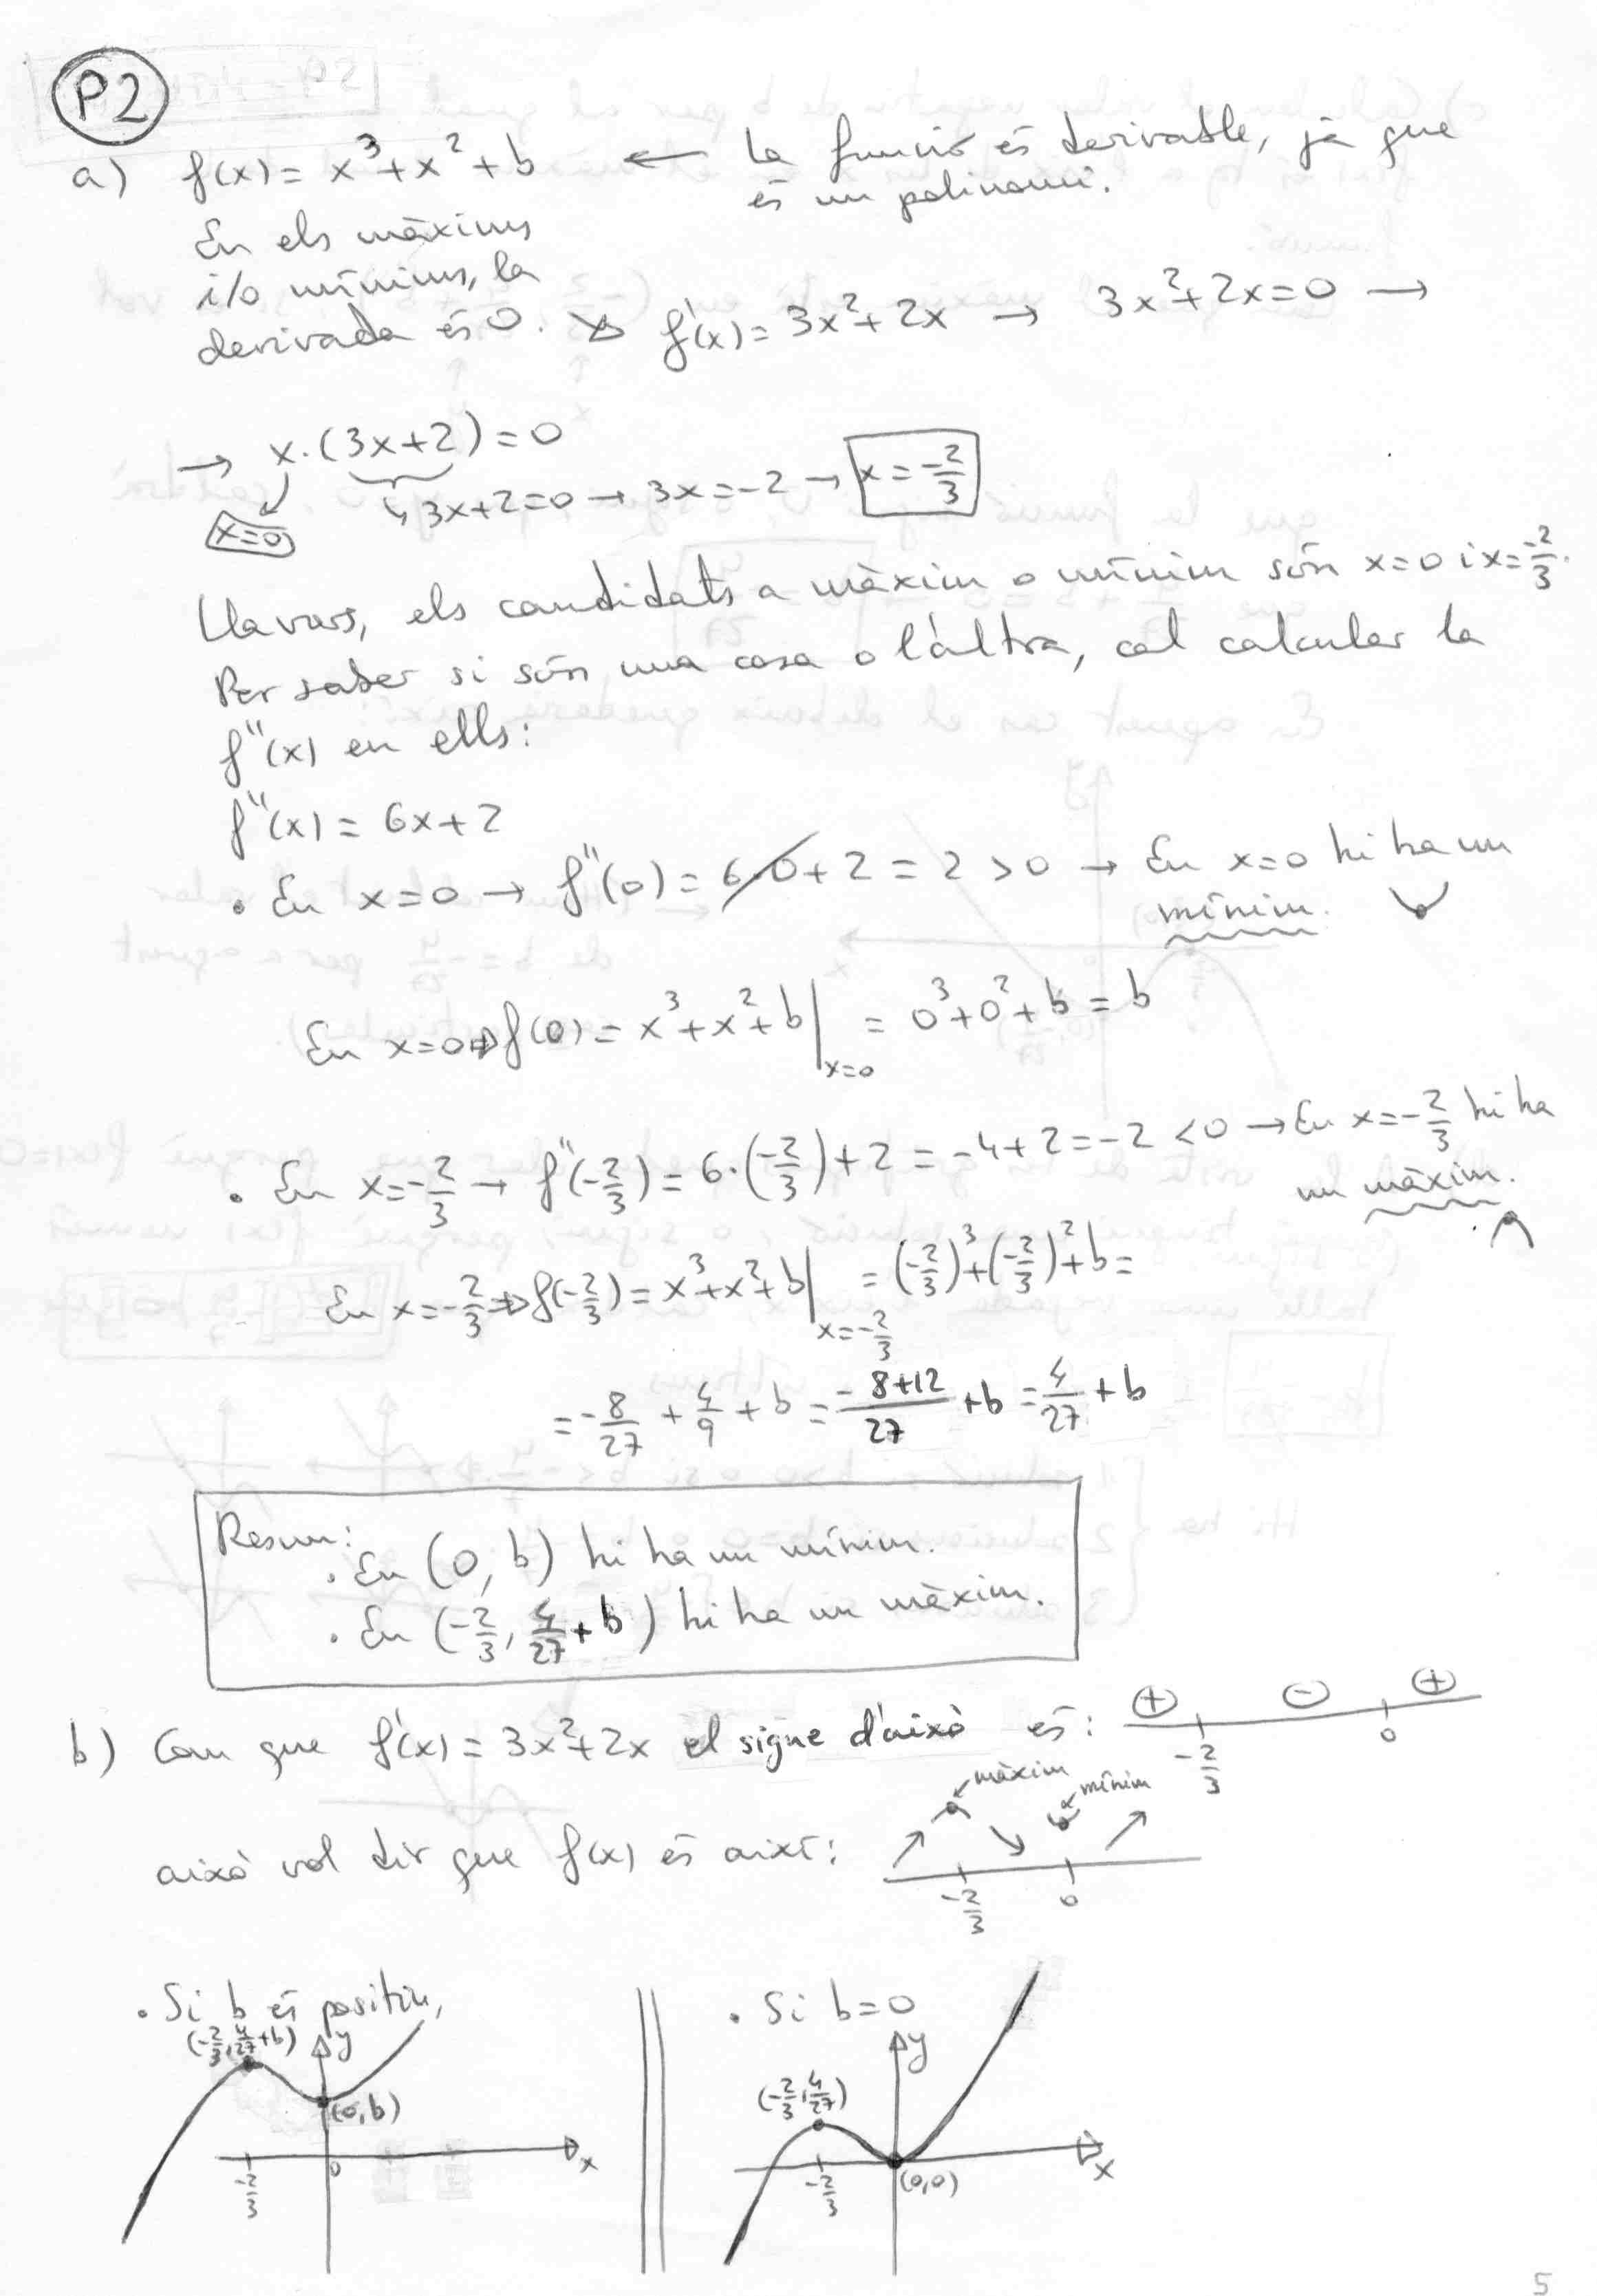 P2
a) f(x) = x³+x²+b ← La funció és derivable, ja que
és un polinomi.
En els màxims
i/o mínims, la
derivada és 0. ⇒ f'(x) = 3x²+2x → 3x²+2x=0 →
→ x·(3x+2)=0
x=0
↳ 3x+2=0 → 3x=-2 → x=-2/3
Llavors, els candidats a màxim o mínim són x=0 i x=-2/3.
Per saber si són una cosa o l'altra, cal calcular la
f''(x) en ells:
f''(x) = 6x+2
• En x=0 → f''(0) = 6·0+2 = 2 >0 → En x=0 hi ha un
mínim.
En x=0 ⇒ f(0) = x³+x²+b|x=0 = 0³+0²+b = b
• En x=-2/3 → f''(-2/3) = 6·(-2/3)+2 = -4+2=-2 <0 → En x=-2/3 hi ha
un màxim.
En x=-2/3 ⇒ f(-2/3) = x³+x²+b|x=-2/3 = (-2/3)³+(-2/3)²+b =
= -8/27 + 4/9 + b = -8+12/27 + b = 4/27 + b
Resum:
• En (0, b) hi ha un mínim.
• En (-2/3, 4/27+b) hi ha un màxim.
b) Com que f'(x) = 3x²+2x el signe d'això és: + - +
-2/3 0
màxim mínim
això vol dir que f(x) és així:
-2/3 0
• Si b és positiu,
(-2/3, 4/27+b) y
(0,b)
x
-2/3 0
• Si b=0
y
(-2/3, 4/27)
x
-2/3 (0,0)
5